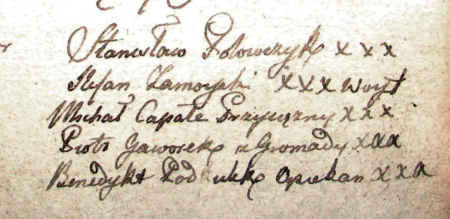 Stanisław Połowczyk x x x
Stefan Zamoyski x x x Woyt
Michał Capała Przysięzny x x x
Piotr Gaworek z Gromady x x x
Benedykt Opiekun x x x